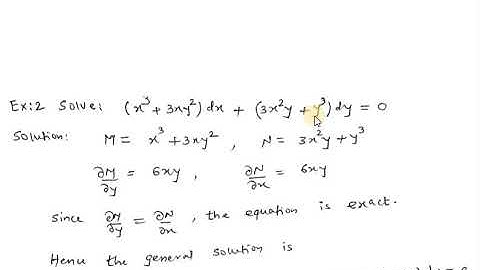 Ex:2 Solve: (x³ + 3xy²) dx + (3x²y + y³) dy = 0
Solution: M = x³ + 3xy² , N = 3x²y + y³
∂M/∂y = 6xy , ∂N/∂x = 6xy
Since ∂M/∂y = ∂N/∂x , the equation is exact.
Henu the general solution is